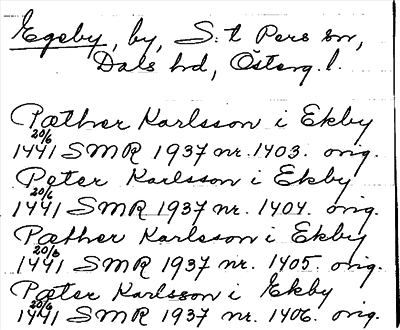 Egeby, by, S:t Pers sn,
Dals hd, Österg.l.
Pæther Karlsson i Ekby
20/6 1441 SMR 1937 nr. 1403. orig.
Peter Karlsson i Ekby
20/6 1441 SMR 1937 nr. 1404. orig.
Pæther Karlsson i Ekby
20/6 1441 SMR 1937 nr. 1405. orig.
Pæter Karlsson i Ekby
20/6 1441 SMR 1937 nr. 1406. orig.